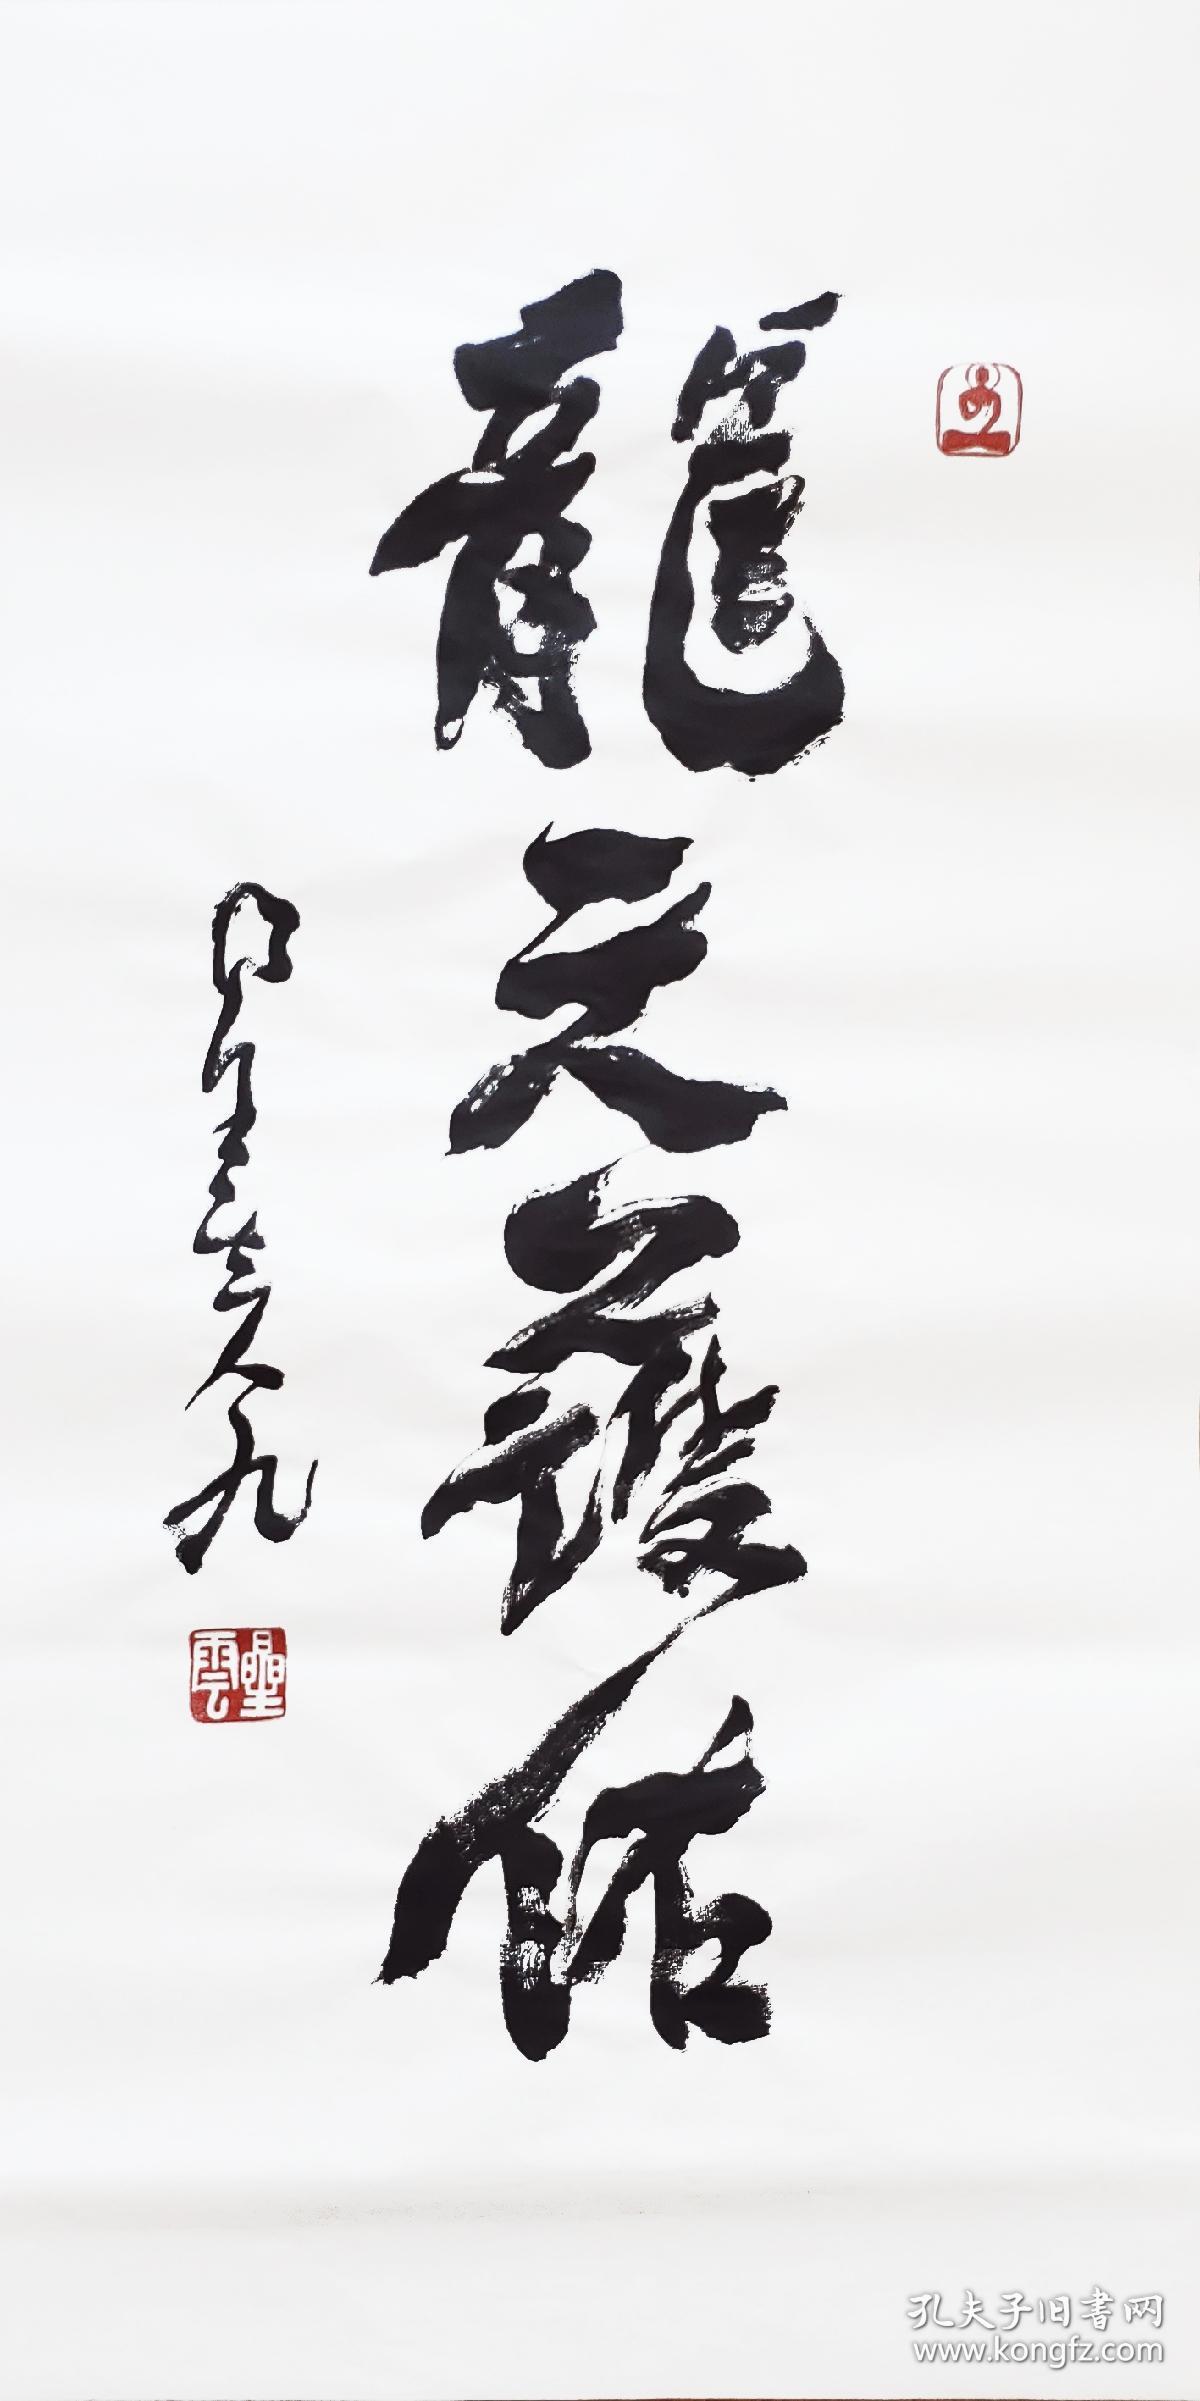 龍天護佑
星雲 八九
星雲
孔夫子旧书网
www.kongfz.com